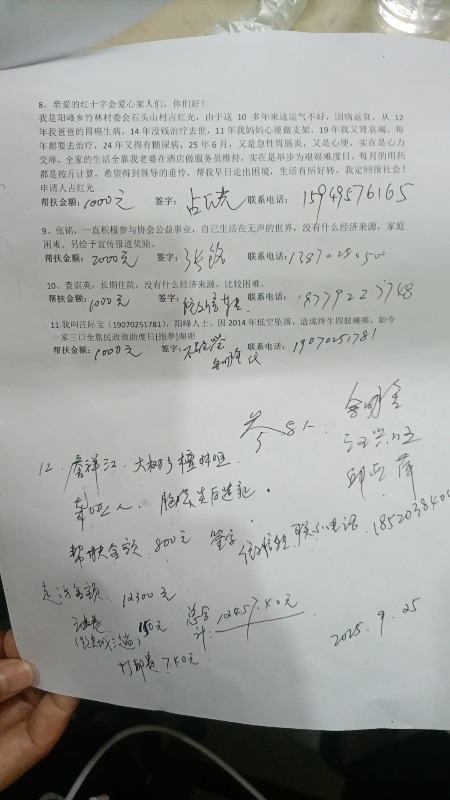 8、亲爱的红十字会爱心家人们，你们好！
我是阳峰乡竹林村委会石头山村占红光，由于这 10 多年来运气不好，因病返贫，从 12
年我爸爸的胃癌生病，14 年没钱治疗去世，11 年我妈妈心梗做支架，19 年我又肾衰竭，每
年都要去治疗，24 年又得有糖尿病，25 年 6 月，又是急性胃肠炎，又是心梗，实在是心力
交瘁，全家的生活全靠我老婆在酒店做服务员维持，实在是举步为艰艰难度日，每月的用药
都是按斤计算，希望得到领导的垂怜，帮我早日走出困境，生活有所好转，我定回报社会！
申请人占红光
帮扶金额：1000元 签字：占红光 联系电话：15949576165
9、张铭，一直积极参与协会公益事业，自己生活在无声的世界，没有什么经济来源，家庭
困难。另给予宣传报道奖励。
帮扶金额：2000元 签字：张铭 联系电话：
10、查崇英，长期住院，没有什么经济来源，比较困难。
帮扶金额：1000元 签字： 联系电话：
11.我叫汪际宝（19070251781），阳峰人士。因 2014 年低空坠落，造成终生四肢瘫痪。如今
一家三口全靠民政救助度日[抱拳]谢谢
帮扶金额：1000元 签字： 联系电话：19070251781
12.詹祥江.大树乡檀林咀
帮扶金额.800元 签字 联系电话.
金额.12300元
150元
总合计：12457.40元
打印费7.40元
2025.9.25